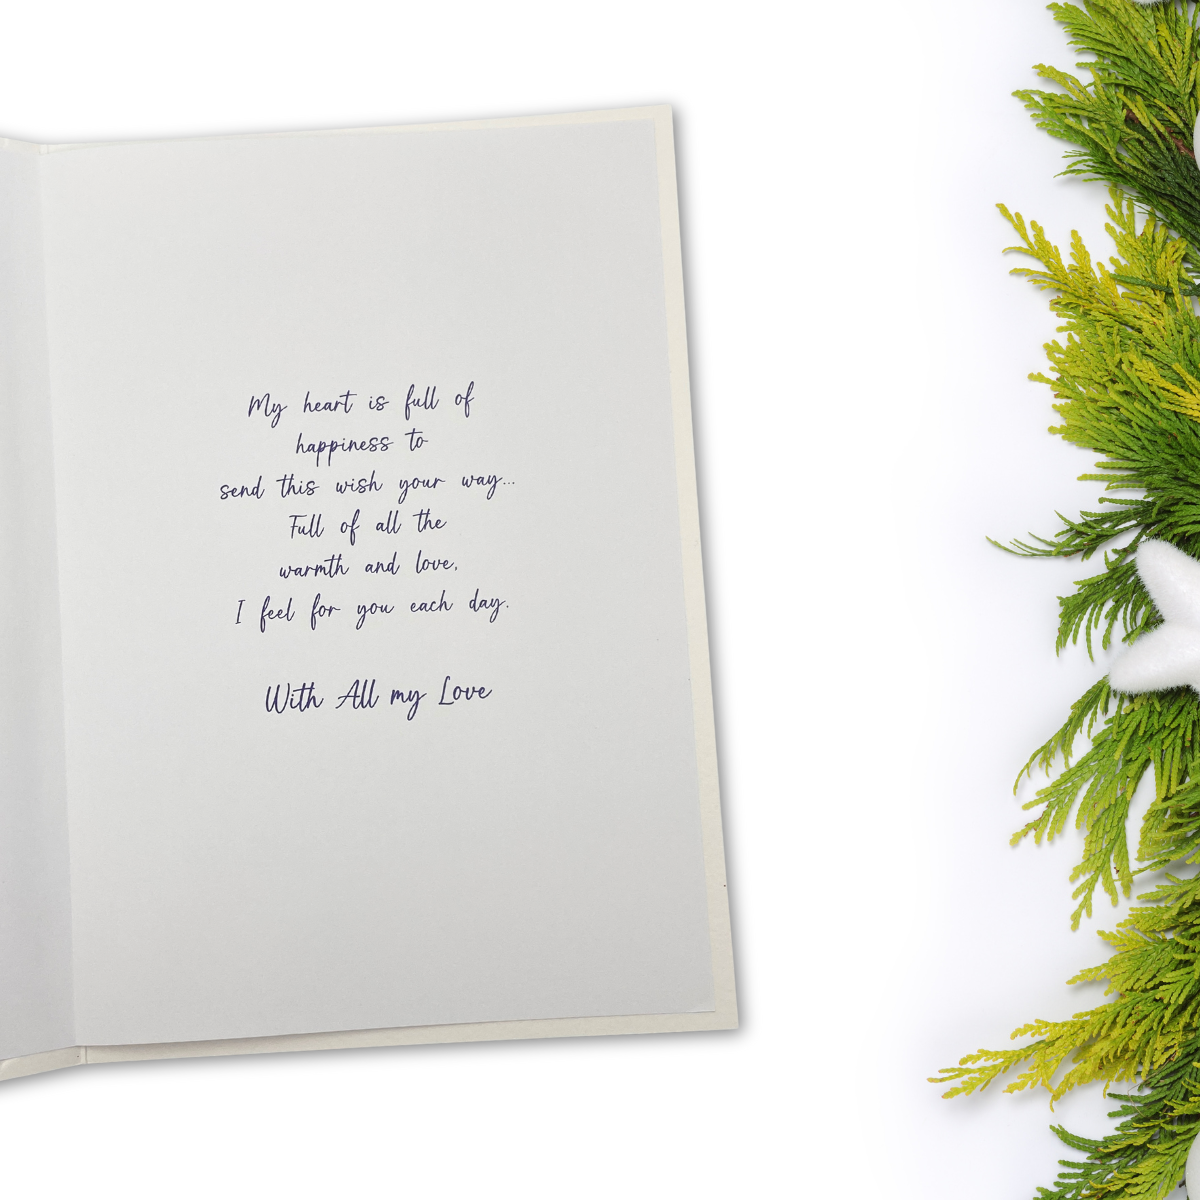 My heart is full of
happiness to
send this wish your way...
Full of all the
warmth and love,
I feel for you each day.
With All my Love